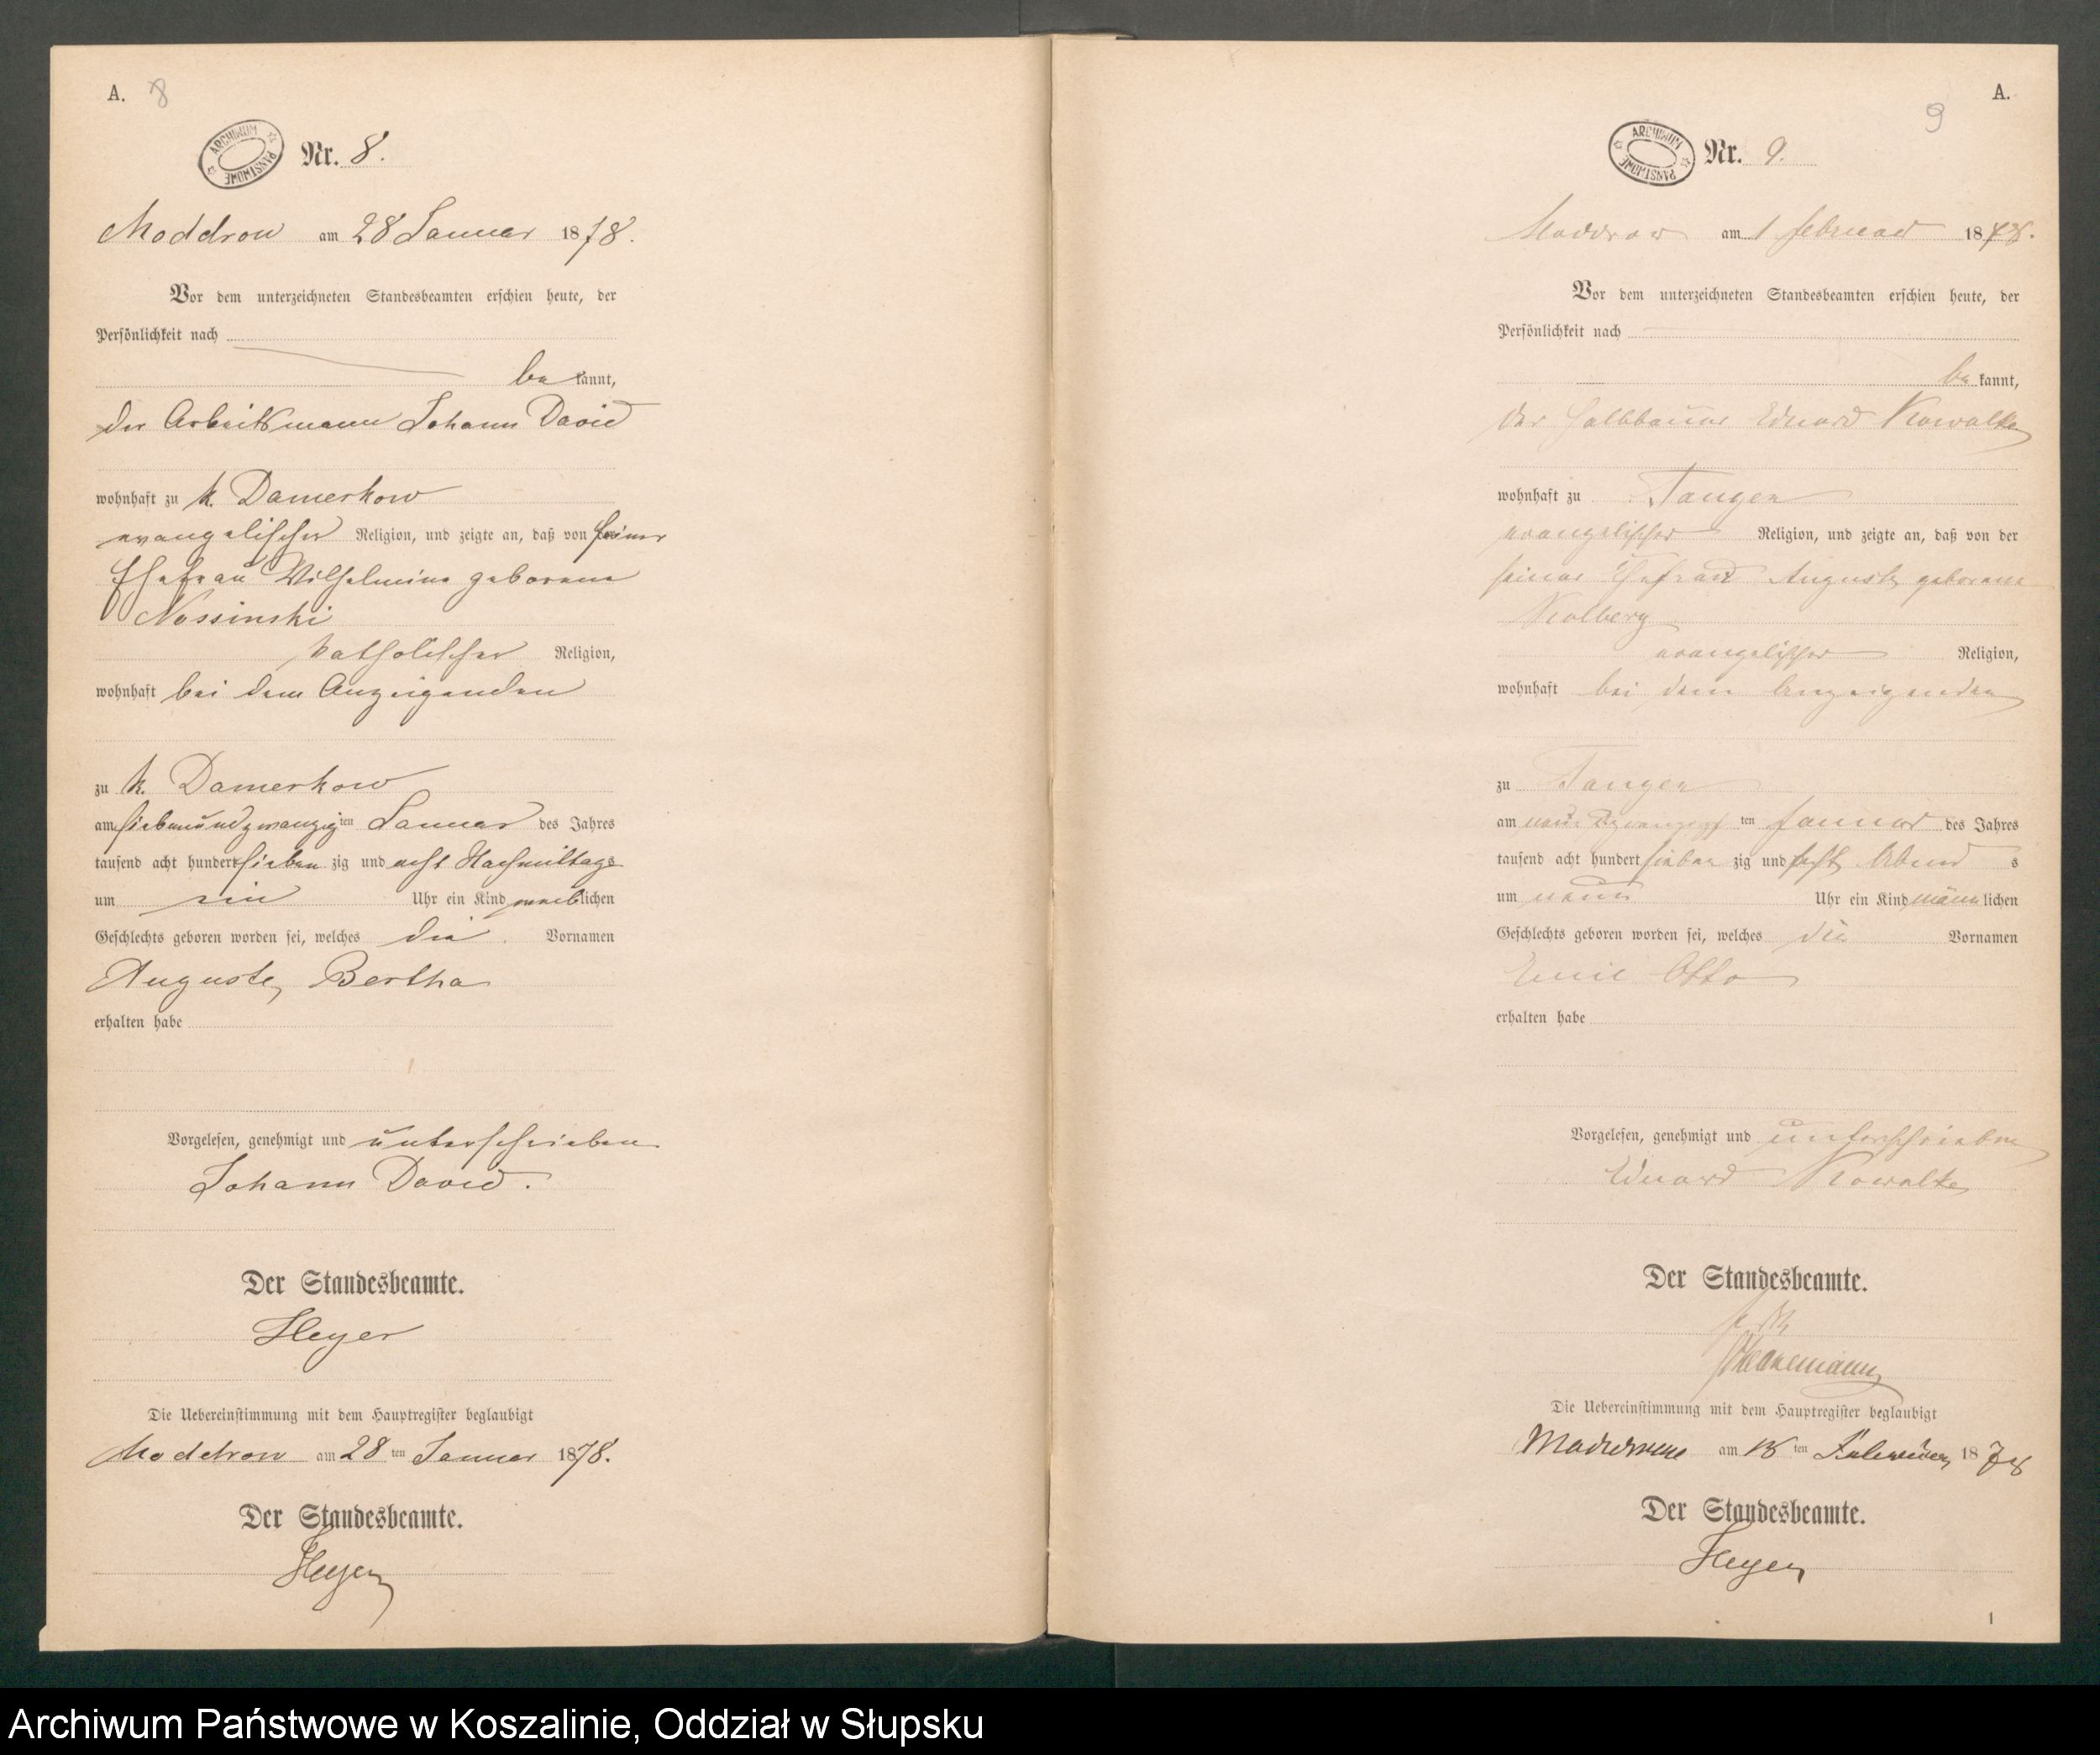 A. 8
ARCHIWUM PAŃSTWOWE
Nr. 8.
Moddrow am 28 Januar 1878.
Vor dem unterzeichneten Standesbeamten erschien heute, der
Persönlichkeit nach
be kannt,
der Arbeitsmann Johann David
wohnhaft zu k. Damerkow
evangelischer Religion, und zeigte an, daß von seiner
Ehefrau Wilhelmine geborene
Nossinski
katholischer Religion,
wohnhaft bei dem Anzeigenden
zu k. Damerkow
am siebenundzwanzigten Januar des Jahres
tausend acht hundert sieben zig und acht Nachmittags
um ein Uhr ein Kind weiblichen
Geschlechts geboren worden sei, welches die Vornamen
Auguste, Bertha
erhalten habe
Vorgelesen, genehmigt und unterschrieben
Johann David.
Der Standesbeamte.
Heyer
Die Uebereinstimmung mit dem Hauptregister beglaubigt
Moddrow am 28 ten Januar 1878.
Der Standesbeamte.
Heyer
A.
9
ARCHIWUM PAŃSTWOWE
Nr. 9.
Moddrow am 1 Februar 1878.
Vor dem unterzeichneten Standesbeamten erschien heute, der
Persönlichkeit nach
be kannt,
der Halbbauer Eduard Kowalke
wohnhaft zu Tangen
evangelischer Religion, und zeigte an, daß von der
seiner Ehefrau Auguste geborene
Kolberg
evangelischer Religion,
wohnhaft bei dem Anzeigenden
zu Tangen
am ten Januar des Jahres
tausend acht hundert sieben zig und acht Abend s
um neun Uhr ein Kind männlichen
Geschlechts geboren worden sei, welches die Vornamen
Emil Otto
erhalten habe
Vorgelesen, genehmigt und unterschrieben
Eduard Kowalke
Der Standesbeamte.
Die Uebereinstimmung mit dem Hauptregister beglaubigt
Moddrow am ten Februar 1878
Der Standesbeamte.
Heyer
1
Archiwum Państwowe w Koszalinie, Oddział w Słupsku